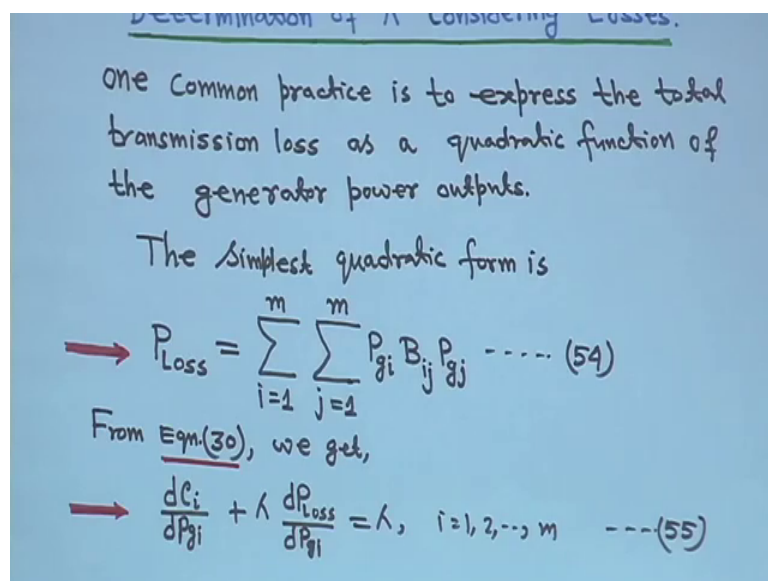 Determination of λ Considering Losses.
one common practice is to express the total
transmission loss as a quadratic function of
the generator power outputs.
The simplest quadratic form is
P_Loss = Σ_{i=1}^{m} Σ_{j=1}^{m} P_gi B_ij P_gj ----- (54)
From Eqn.(30), we get,
dC_i/dP_gi + λ dP_Loss/dP_gi = λ, i=1,2,--, m ----(55)